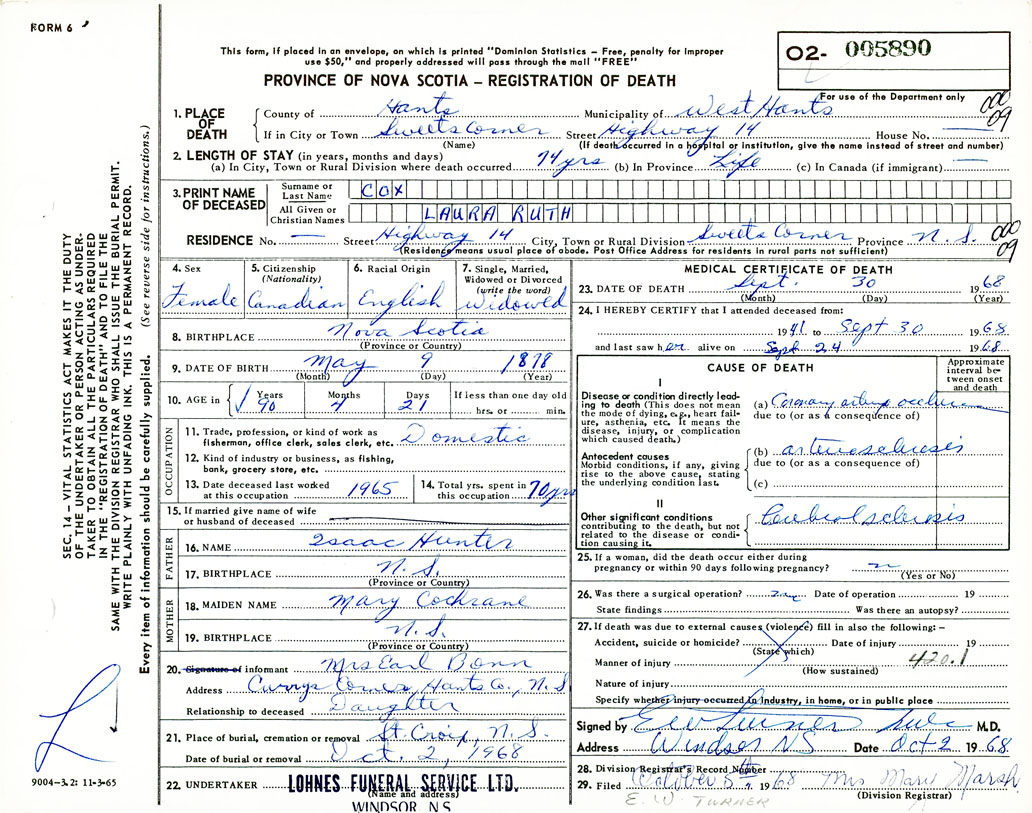 FORM 6
This form, if placed in an envelope, on which is printed "Dominion Statistics – Free, penalty for improper
use $50," and properly addressed will pass through the mail "FREE"
PROVINCE OF NOVA SCOTIA – REGISTRATION OF DEATH
O2- 005890
For use of the Department only
000
09
1. PLACE OF DEATH
County of Hants Municipality of West Hants
If in City or Town Sweets Corner Street Highway 14 House No. —
(Name) (If death occurred in a hospital or institution, give the name instead of street and number)
2. LENGTH OF STAY (in years, months and days)
(a) In City, Town or Rural Division where death occurred 74 yrs (b) In Province Life (c) In Canada (if immigrant) —
3. PRINT NAME OF DECEASED
Surname or Last Name COX
All Given or Christian Names LAURA RUTH
RESIDENCE No. — Street Highway 14 City, Town or Rural Division Sweets Corner Province N.S.
(Residence means usual place of abode. Post Office Address for residents in rural parts not sufficient)
000
09
4. Sex
Female
5. Citizenship
(Nationality)
Canadian
6. Racial Origin
English
7. Single, Married,
Widowed or Divorced
(write the word)
Widowed
8. BIRTHPLACE Nova Scotia
(Province or Country)
9. DATE OF BIRTH May 9 1878
(Month) (Day) (Year)
10. AGE in
Years Months Days If less than one day old
90 4 21 hrs. or min.
OCCUPATION
11. Trade, profession, or kind of work as
fisherman, office clerk, sales clerk, etc. Domestic
12. Kind of industry or business, as fishing,
bank, grocery store, etc.
13. Date deceased last worked
at this occupation 1965
14. Total yrs. spent in
this occupation 70 yrs
15. If married give name of wife
or husband of deceased
FATHER
16. NAME Isaac Hunter
17. BIRTHPLACE N.S.
(Province or Country)
MOTHER
18. MAIDEN NAME Mary Cochrane
19. BIRTHPLACE N.S.
(Province or Country)
20. Signature of informant Mrs Earl Bonn
Address Currys Corner, Hants Co., N.S
Relationship to deceased Daughter
21. Place of burial, cremation or removal St. Croix, N.S.
Date of burial or removal Oct. 2, 1968
22. UNDERTAKER LOHNES FUNERAL SERVICE LTD.
(Name and address)
WINDSOR N.S.
MEDICAL CERTIFICATE OF DEATH
23. DATE OF DEATH Sept. 30 1968
(Month) (Day) (Year)
24. I HEREBY CERTIFY that I attended deceased from:
1941 to Sept 30 1968
and last saw her alive on Sept 24 1968
CAUSE OF DEATH
Approximate
interval be-
tween onset
and death
I
Disease or condition directly lead-
ing to death (This does not mean
the mode of dying, e.g., heart fail-
ure, asthenia, etc. It means the
disease, injury, or complication
which caused death.)
(a) Coronary artery occlusion
due to (or as a consequence of)
Antecedent causes
Morbid conditions, if any, giving
rise to the above cause, stating
the underlying condition last.
(b) arteriosclerosis
due to (or as a consequence of)
(c)
II
Other significant conditions
contributing to the death, but not
related to the disease or condi-
tion causing it.
Cerebral sclerosis
25. If a woman, did the death occur either during
pregnancy or within 90 days following pregnancy?
(Yes or No)
26. Was there a surgical operation? Date of operation 19
State findings Was there an autopsy?
27. If death was due to external causes (violence) fill in also the following: –
Accident, suicide or homicide? Date of injury 19
(State which)
Manner of injury 420.1
(How sustained)
Nature of injury
Specify whether injury occurred in Industry, in home, or in public place
Signed by EW Turner M.D.
Address Windsor NS Date Oct 2 1968
28. Division Registrar's Record Number
29. Filed October 5th 1968 Mrs Mary Marsh
(Division Registrar)
E. W. TURNER
SEC. 14 – VITAL STATISTICS ACT MAKES IT THE DUTY
OF THE UNDERTAKER OR PERSON ACTING AS UNDER-
TAKER TO OBTAIN ALL THE PARTICULARS REQUIRED
IN THE "REGISTRATION OF DEATH" AND TO FILE THE
SAME WITH THE DIVISION REGISTRAR WHO SHALL ISSUE THE BURIAL PERMIT.
WRITE PLAINLY WITH UNFADING INK. THIS IS A PERMANENT RECORD.
Every item of information should be carefully supplied. (See reverse side for instructions.)
9004–3.2: 11-3-65